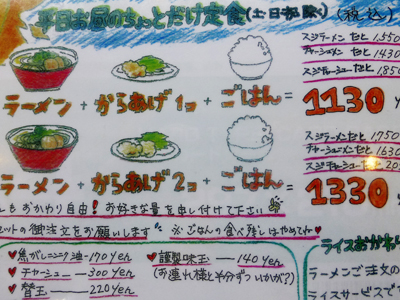 平日お昼のちょっとだけ定食(土日祝除く)(税込)
スジラーメン だと 1,550
チャーシューメン だと 1430
スジチャーシュー だと 1,850
ラーメン + からあげ1コ + ごはん = 1130
スジラーメン だと 1750
チャーシューメン だと 1630
スジチャーシュー だと
ラーメン + からあげ2コ + ごはん = 1330
もおかわり自由! お好きな量を申し付けて下さい
セットの御注文をお願いします ※ごはんの食べ残しはやめてね
♥焦がしニンニク油-170yen
♥チャーシュー ― 300yen
♥替玉 ― 220yen
♥謹製味玉 ― 140yen
(お連れ様と半分ずついかが?)
ライスおかわ
ラーメンご注文の
ライスサービスで